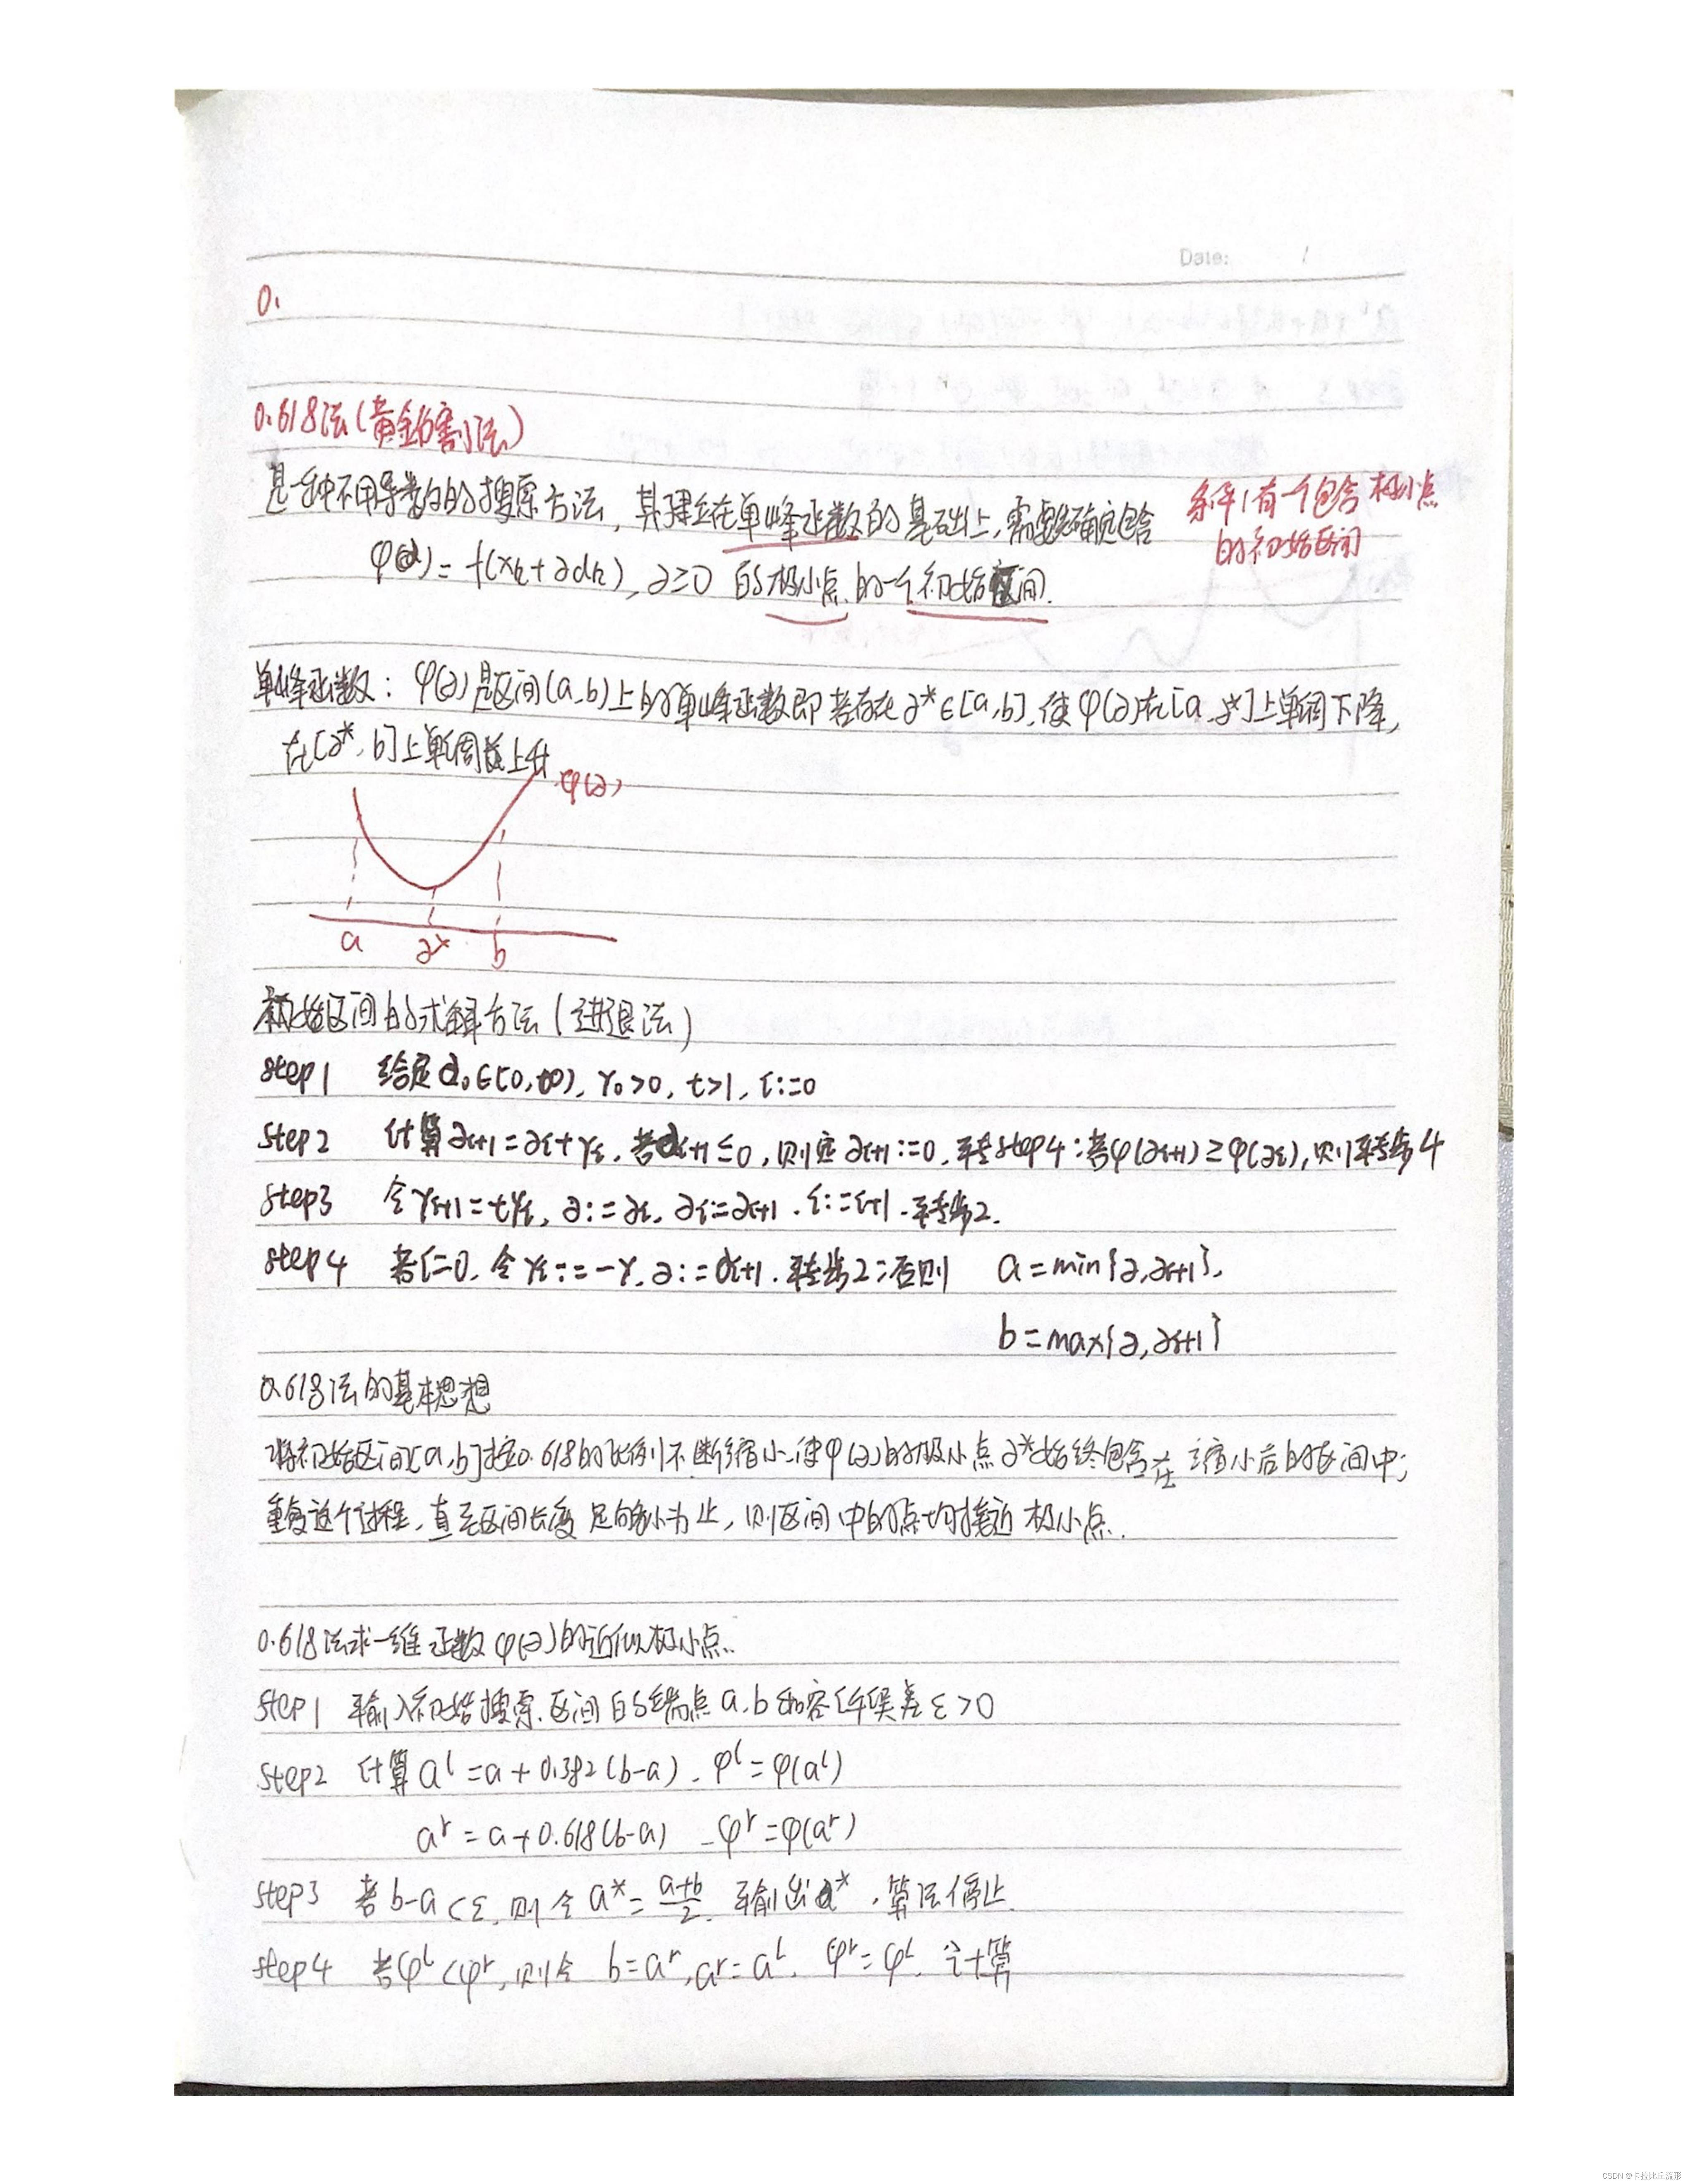 Date: /
0.
0.618法(黄金分割法)
是一种不用导数的搜索方法,其建立在单峰函数的基础上,需要先确定包含
条件1有一个包含极小点
的初始区间
φ(α)=f(xk+αdk),α≥0 的极小点的一个初始区间.
单峰函数: φ(α)是区间(a,b)上的单峰函数即若存在α*∈[a,b],使φ(α)在[a,α*]上单调下降,
在[α*,b]上单调上升
φ(α)
a α* b
初始区间的求解方法(进退法)
step1 给定α0∈[0,+∞),γ0>0,t>1,i:=0
step2 计算αi+1=αi+γi,若αi+1≤0,则定αi+1:=0,转step4;若φ(αi+1)≥φ(αi),则转步4
step3 令γi+1=tγi,α:=αi,αi:=αi+1.i:=i+1.转步2.
step4 若i=0,令γi:=-γ,α:=αi+1.转步2;否则 a=min{α,αi+1},
b=max{α,αi+1}
0.618法的基本思想
将初始区间[a,b]按0.618的比例不断缩小,使φ(α)的极小点α*始终包含在缩小后的区间中;
重复这个过程,直至区间长度足够小为止,则区间中的点均接近极小点.
0.618法求一维函数φ(α)的近似极小点.
step1 输入初始搜索区间的端点a,b和容许误差ε>0
step2 计算aˡ=a+0.382(b-a).φˡ=φ(aˡ)
aʳ=a+0.618(b-a) φʳ=φ(aʳ)
step3 若b-a<ε,则令a*=(a+b)/2.输出a*,算法停止.
step4 若φˡ<φʳ,则令 b=aʳ,aʳ=aˡ,φʳ=φˡ,计算
CSDN @卡拉比丘流形